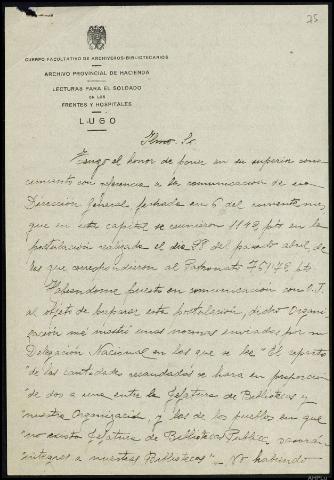 25
CUERPO FACULTATIVO DE ARCHIVEROS-BIBLIOTECARIOS
ARCHIVO PROVINCIAL DE HACIENDA
LECTURAS PARA EL SOLDADO
DE LOS
FRENTES Y HOSPITALES
LUGO
Ilmo. Sr.
Tengo el honor de poner en su superior cono-
cimiento con referencia a la comunicacion de esa
Dirección General fechada en 6 del corriente mes
que en esta capital se reunieron 1143 pts en la
postulación realizada el dia del pasado abril de
las que correspondieron al Patronato pts.
Habiendome puesto en comunicación con
al objeto de preparar esta postulación, dicha Organi-
zación me mostró unas normas enviadas por su
Delegación Nacional en las que se lee "El reparto
"de las cantidades recaudadas se hara en proporcion
"de dos a una entre la Jefatura de Bibliotecas y
"nuestra Organización, y las de los pueblos en que
"no exista Jefatura de Bibliotecas Publicas
"integras a nuestras Bibliotecas". No habiendo